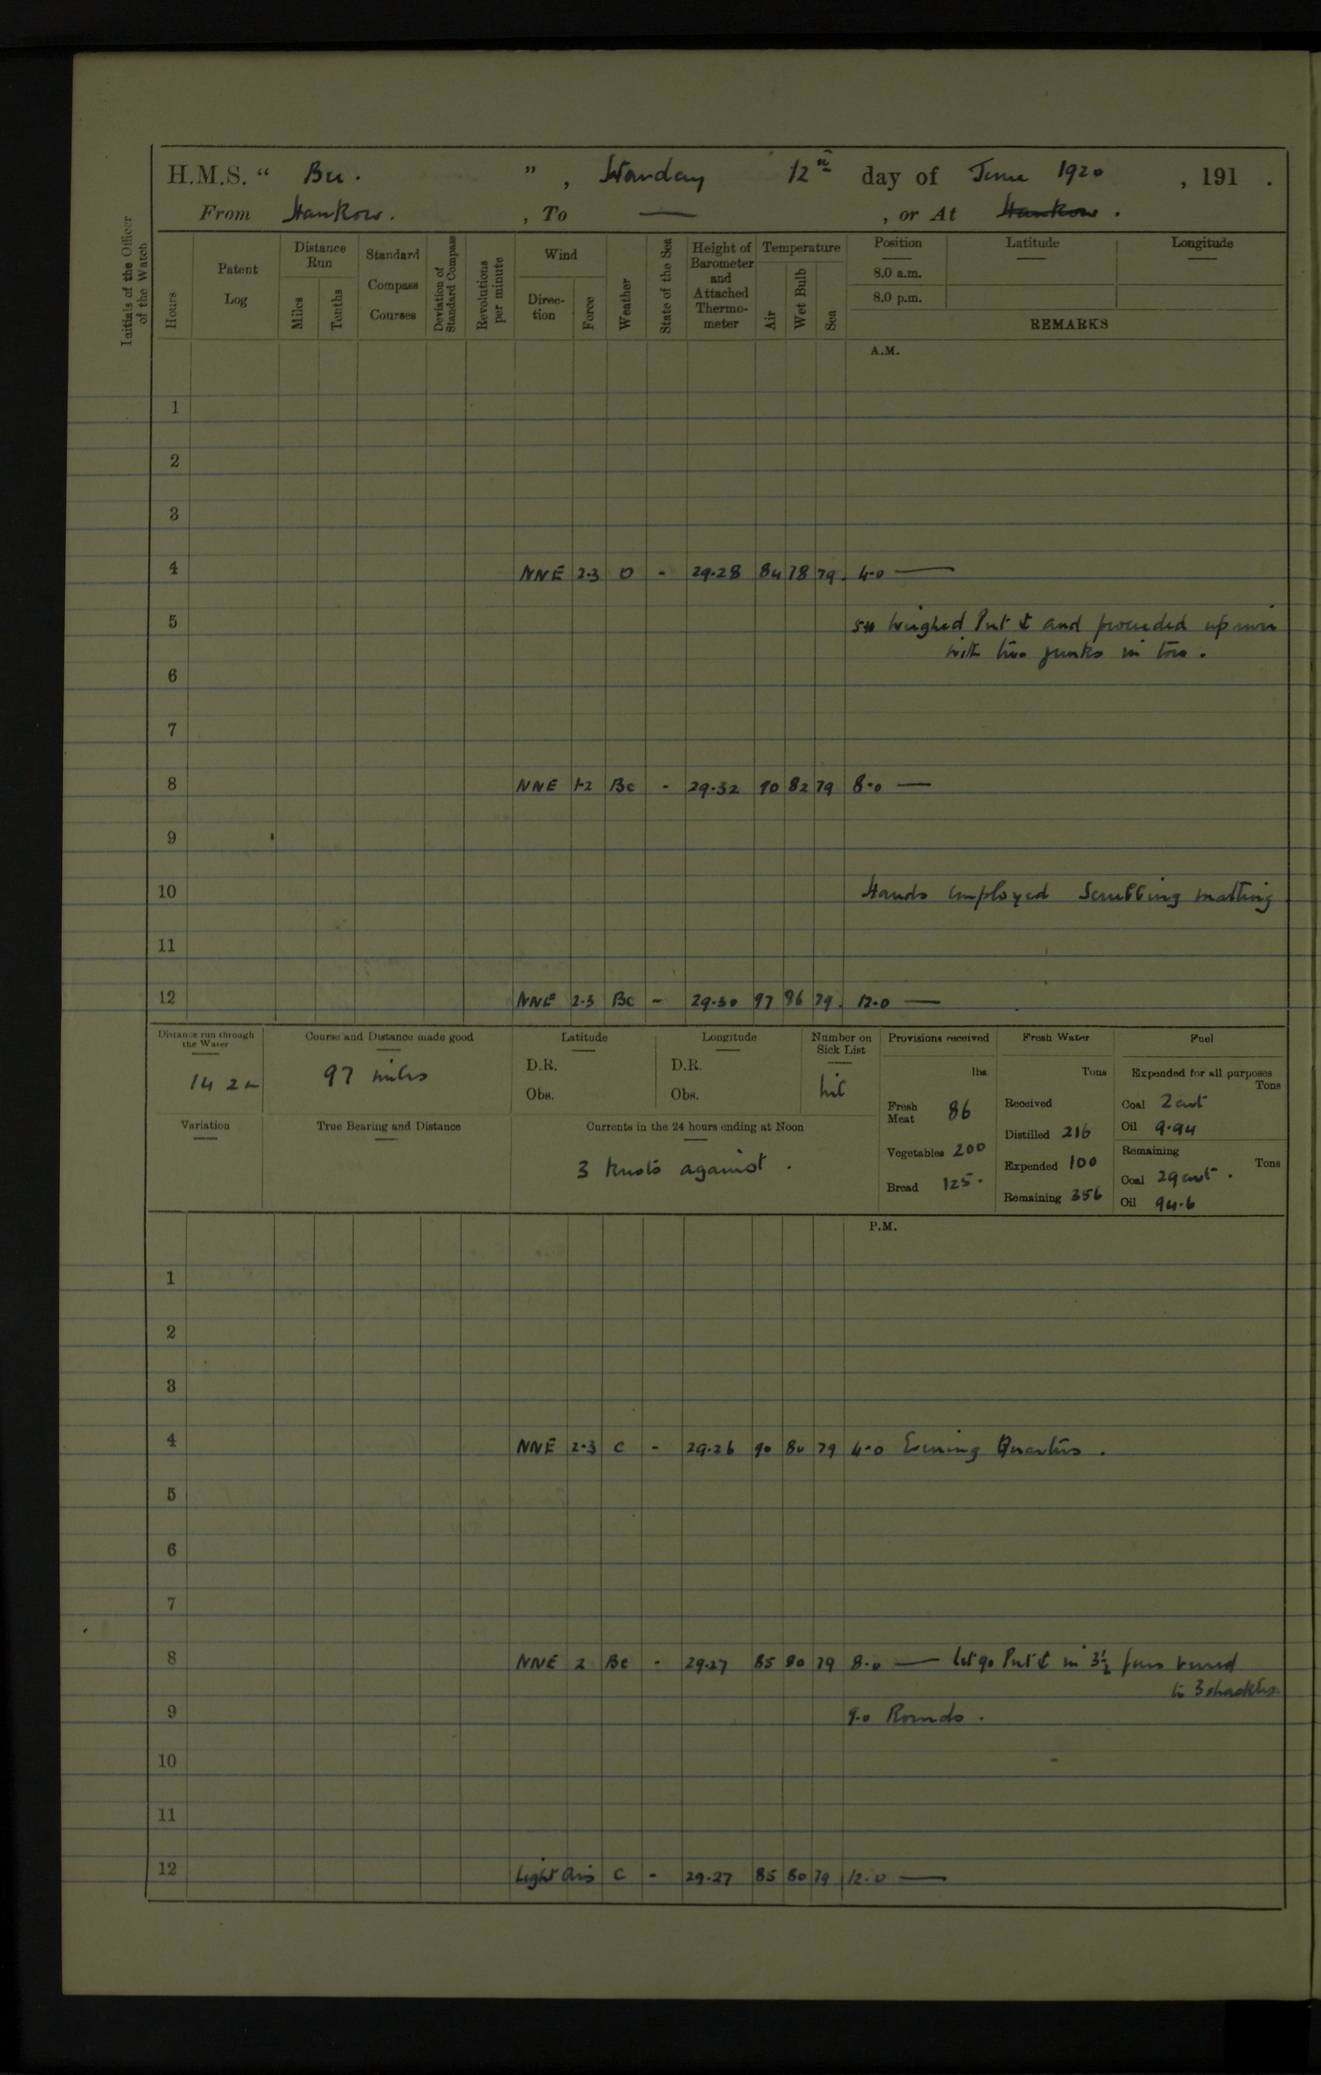 H.M.S. " Bee. ", Saturday 12th day of June 1920, 191 .
From Hankow. , To — , or At Hankow.
Initials of the Officer of the Watch
Hours
Patent Log
Distance Run
Miles
Tenths
Standard Compass Courses
Deviation of Standard Compass
Revolutions per minute
Wind
Direction
Force
Weather
State of the Sea
Height of Barometer and Attached Thermometer
Temperature
Air
Wet Bulb
Sea
Position
Latitude
Longitude
8.0 a.m.
8.0 p.m.
REMARKS
A.M.
1
2
3
4 NNE 2.3 O - 29.28 84 78 79. 4.0 —
5 Weighed Port ⚓ and proceeded up river
with two junks in tow.
6
7
8 NNE 1-2 Bc - 29.32 90 82 79 8.0 —
9
10 Hands employed Scrubbing matting
11
12 NNE 2.3 Bc - 29.30 97 86 79. 12.0 —
Distance run through the Water
142
Course and Distance made good
97 miles
Latitude
D.R.
Obs.
Longitude
D.R.
Obs.
Number on Sick List
nil
Variation
True Bearing and Distance
Currents in the 24 hours ending at Noon
3 knots against.
Provisions received
lbs.
Fresh Meat 86
Vegetables 200
Bread 125.
Fresh Water
Tons
Received
Distilled 216
Expended 100
Remaining 356
Fuel
Expended for all purposes
Tons
Coal 2 cwt
Oil 9.94
Remaining
Tons
Coal 29 cwt.
Oil 94.6
P.M.
1
2
3
4 NNE 2.3 C - 29.26 90 80 79 4.0 Evening Quarters.
5
6
7
8 NNE 2 Bc - 29.27 85 80 79 8.0 — let go Port ⚓ in 3½ fms veered
to 3 shackles.
9 9.0 Rounds.
10
11
12 Light airs C - 29.27 85 80 79 12.0 —